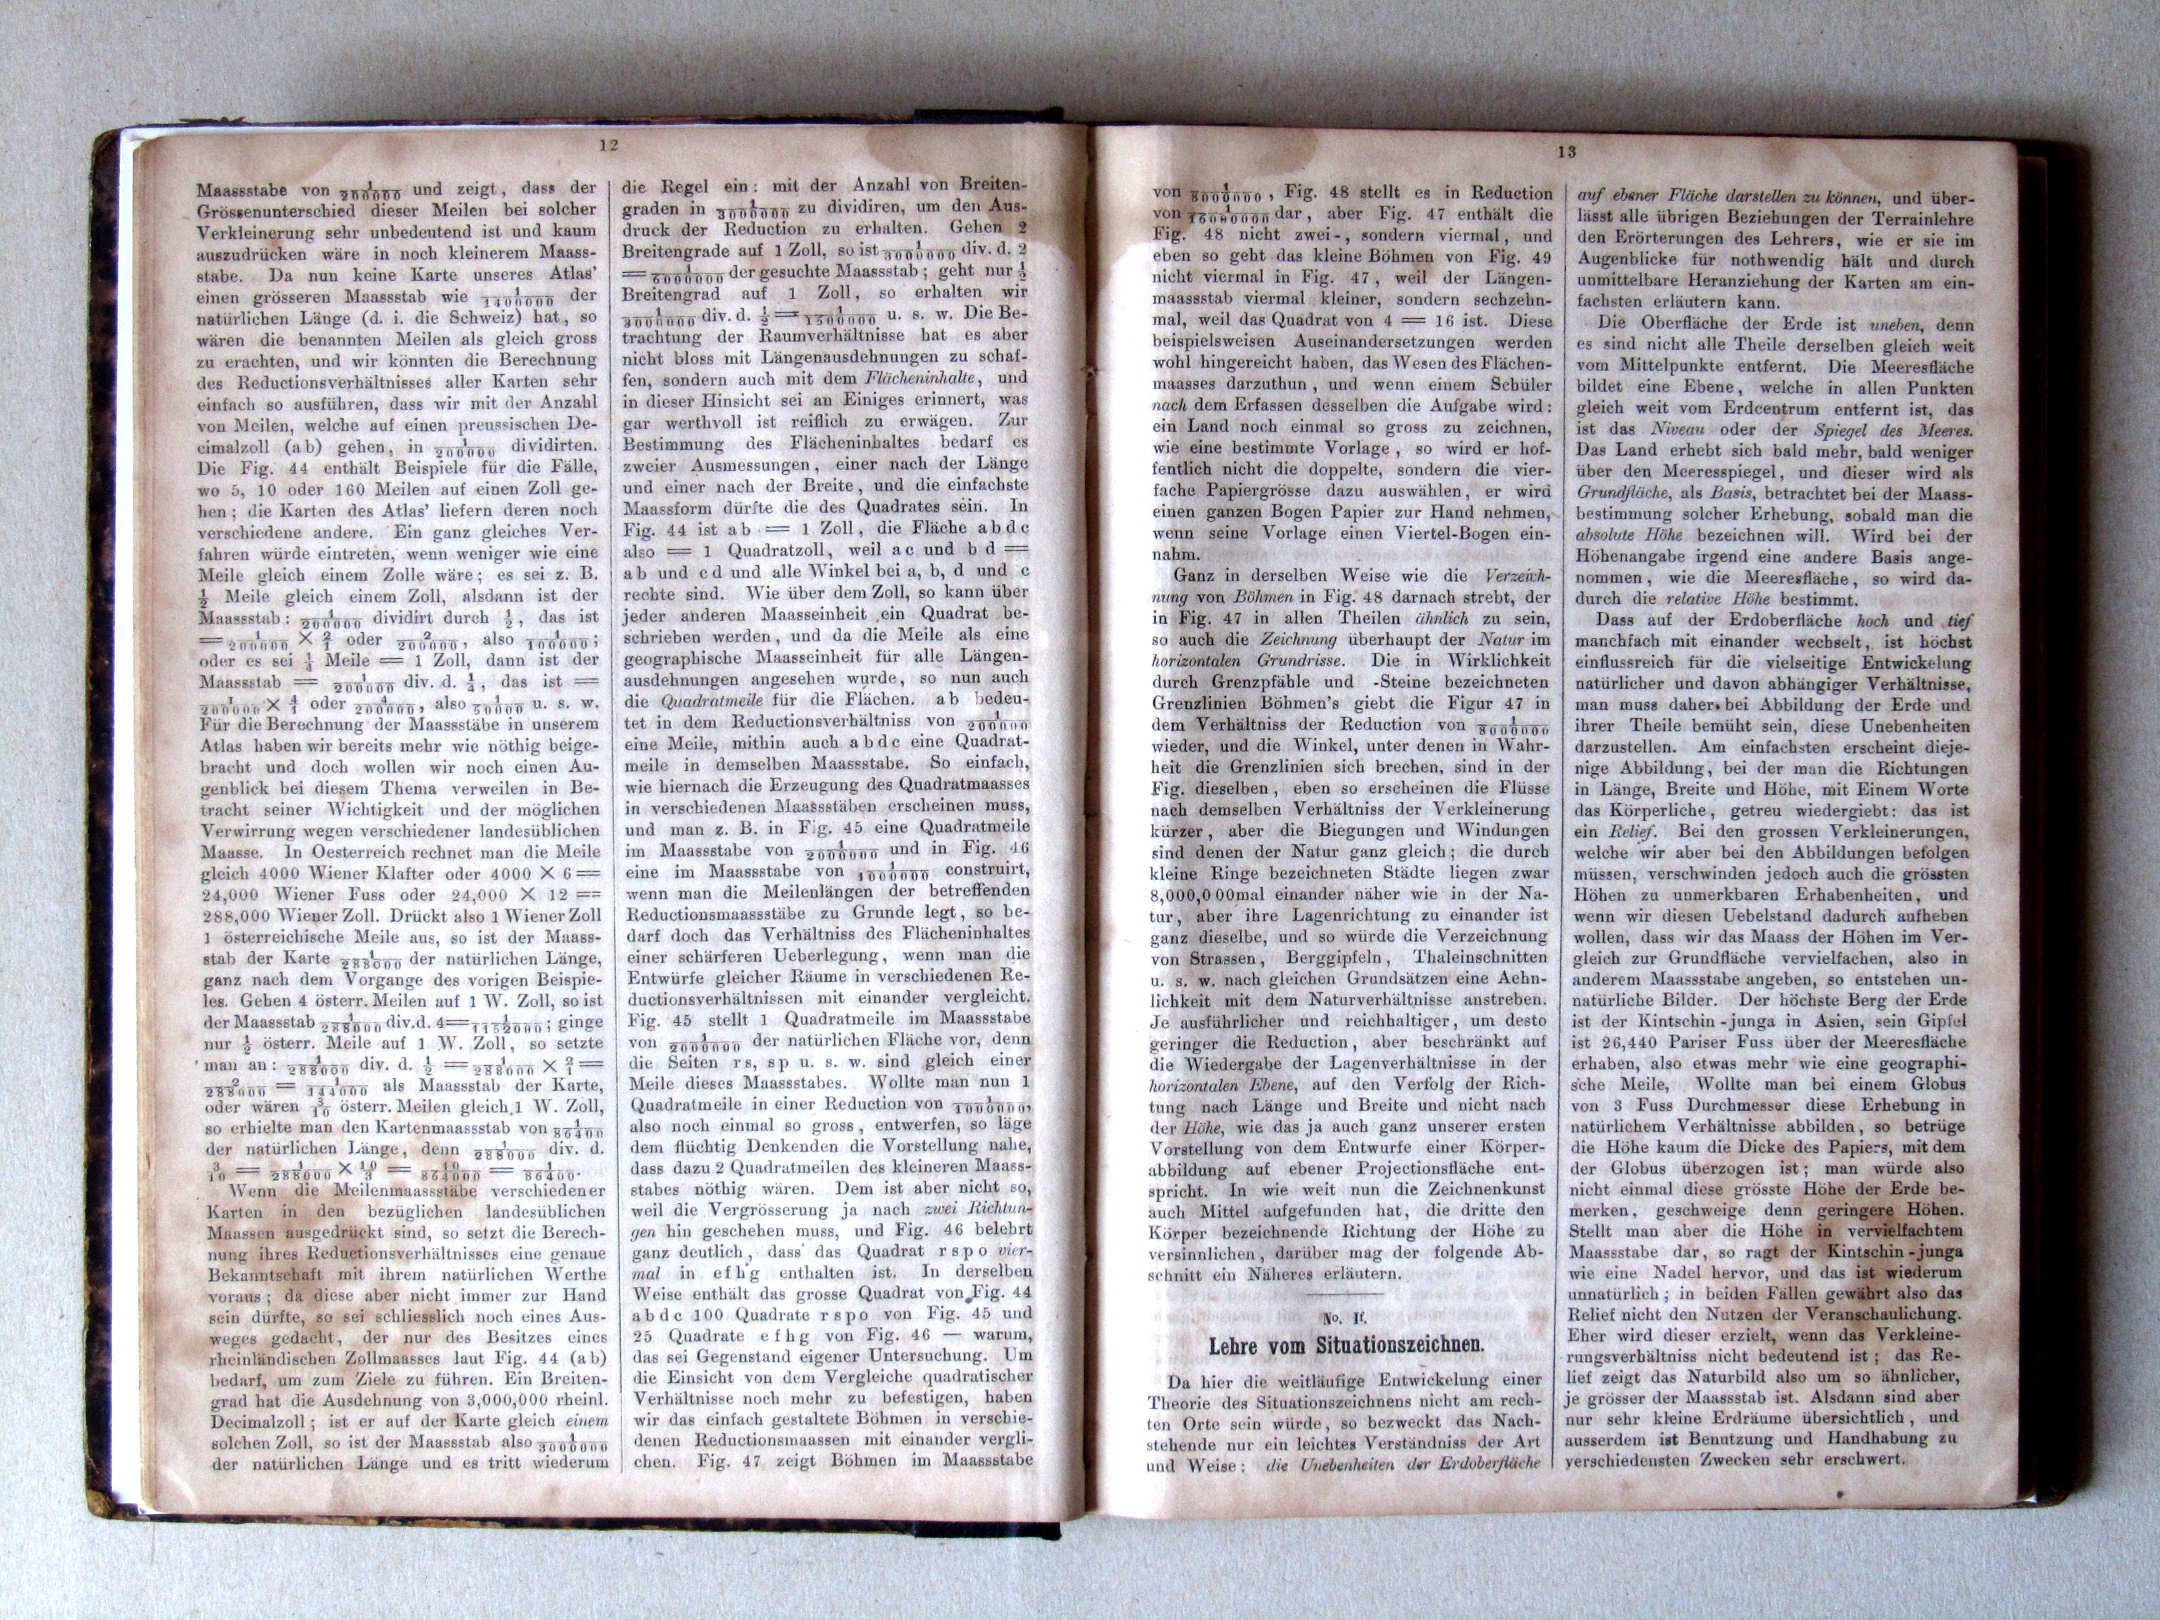 12
Maassstabe von 1/200000 und zeigt, dass der
Grössenunterschied dieser Meilen bei solcher
Verkleinerung sehr unbedeutend ist und kaum
auszudrücken wäre in noch kleinerem Maass-
stabe. Da nun keine Karte unseres Atlas'
einen grösseren Maassstab wie 1/1400000 der
natürlichen Länge (d. i. die Schweiz) hat, so
wären die benannten Meilen als gleich gross
zu erachten, und wir könnten die Berechnung
des Reductionsverhältnisses aller Karten sehr
einfach so ausführen, dass wir mit der Anzahl
von Meilen, welche auf einen preussischen De-
cimalzoll (ab) gehen, in 1/200000 dividirten.
Die Fig. 44 enthält Beispiele für die Fälle,
wo 5, 10 oder 160 Meilen auf einen Zoll ge-
hen; die Karten des Atlas' liefern deren noch
verschiedene andere. Ein ganz gleiches Ver-
fahren würde eintreten, wenn weniger wie eine
Meile gleich einem Zolle wäre; es sei z. B.
1/2 Meile gleich einem Zoll, alsdann ist der
Maassstab: 1/200000 dividirt durch 1/2, das ist
= 1/200000 × 2/1 oder 2/200000, also 1/100000;
oder es sei 1/4 Meile = 1 Zoll, dann ist der
Maassstab = 1/200000 div. d. 1/4, das ist =
1/200000 × 4/1 oder 4/200000, also 1/50000 u. s. w.
Für die Berechnung der Maassstäbe in unserem
Atlas haben wir bereits mehr wie nöthig beige-
bracht und doch wollen wir noch einen Au-
genblick bei diesem Thema verweilen in Be-
tracht seiner Wichtigkeit und der möglichen
Verwirrung wegen verschiedener landesüblichen
Maasse. In Oesterreich rechnet man die Meile
gleich 4000 Wiener Klafter oder 4000 × 6 =
24,000 Wiener Fuss oder 24,000 × 12 =
288,000 Wiener Zoll. Drückt also 1 Wiener Zoll
1 österreichische Meile aus, so ist der Maass-
stab der Karte 1/288000 der natürlichen Länge,
ganz nach dem Vorgange des vorigen Beispie-
les. Gehen 4 österr. Meilen auf 1 W. Zoll, so ist
der Maassstab 1/288000 div. d. 4 = 1/1152000; ginge
nur 1/2 österr. Meile auf 1 W. Zoll, so setzte
man an: 1/288000 div. d. 1/2 = 1/288000 × 2/1 =
2/288000 = 1/144000 als Maassstab der Karte,
oder wären 3/10 österr. Meilen gleich 1 W. Zoll,
so erhielte man den Kartenmaassstab von 1/86400
der natürlichen Länge, denn 1/288000 div. d.
3/10 = 1/288000 × 10/3 = 10/864000 = 1/86400.
Wenn die Meilenmaassstäbe verschiedener
Karten in den bezüglichen landesüblichen
Maassen ausgedrückt sind, so setzt die Berech-
nung ihres Reductionsverhältnisses eine genaue
Bekanntschaft mit ihrem natürlichen Werthe
voraus; da diese aber nicht immer zur Hand
sein dürfte, so sei schliesslich noch eines Aus-
weges gedacht, der nur des Besitzes eines
rheinländischen Zollmaasses laut Fig. 44 (ab)
bedarf, um zum Ziele zu führen. Ein Breiten-
grad hat die Ausdehnung von 3,000,000 rheinl.
Decimalzoll; ist er auf der Karte gleich einem
solchen Zoll, so ist der Maassstab also 1/3000000
der natürlichen Länge und es tritt wiederum
die Regel ein: mit der Anzahl von Breiten-
graden in 1/3000000 zu dividiren, um den Aus-
druck der Reduction zu erhalten. Gehen 2
Breitengrade auf 1 Zoll, so ist 1/3000000 div. d. 2
= 1/6000000 der gesuchte Maassstab; geht nur 1/2
Breitengrad auf 1 Zoll, so erhalten wir
1/3000000 div. d. 1/2 = 1/1500000 u. s. w. Die Be-
trachtung der Raumverhältnisse hat es aber
nicht bloss mit Längenausdehnungen zu schaf-
fen, sondern auch mit dem Flächeninhalte, und
in dieser Hinsicht sei an Einiges erinnert, was
gar werthvoll ist reiflich zu erwägen. Zur
Bestimmung des Flächeninhaltes bedarf es
zweier Ausmessungen, einer nach der Länge
und einer nach der Breite, und die einfachste
Maassform dürfte die des Quadrates sein. In
Fig. 44 ist ab = 1 Zoll, die Fläche abdc
also = 1 Quadratzoll, weil ac und bd =
ab und cd und alle Winkel bei a, b, d und c
rechte sind. Wie über dem Zoll, so kann über
jeder anderen Maasseinheit ein Quadrat be-
schrieben werden, und da die Meile als eine
geographische Maasseinheit für alle Längen-
ausdehnungen angesehen wurde, so nun auch
die Quadratmeile für die Flächen. ab bedeu-
tet in dem Reductionsverhältniss von 1/200000
eine Meile, mithin auch abdc eine Quadrat-
meile in demselben Maassstabe. So einfach,
wie hiernach die Erzeugung des Quadratmaasses
in verschiedenen Maassstäben erscheinen muss,
und man z. B. in Fig. 45 eine Quadratmeile
im Maassstabe von 1/2000000 und in Fig. 46
eine im Maassstabe von 1/1000000 construirt,
wenn man die Meilenlängen der betreffenden
Reductionsmaassstäbe zu Grunde legt, so be-
darf doch das Verhältniss des Flächeninhaltes
einer schärferen Ueberlegung, wenn man die
Entwürfe gleicher Räume in verschiedenen Re-
ductionsverhältnissen mit einander vergleicht.
Fig. 45 stellt 1 Quadratmeile im Maassstabe
von 1/2000000 der natürlichen Fläche vor, denn
die Seiten rs, sp u. s. w. sind gleich einer
Meile dieses Maassstabes. Wollte man nun 1
Quadratmeile in einer Reduction von 1/1000000,
also noch einmal so gross, entwerfen, so läge
dem flüchtig Denkenden die Vorstellung nahe,
dass dazu 2 Quadratmeilen des kleineren Maass-
stabes nöthig wären. Dem ist aber nicht so,
weil die Vergrösserung ja nach zwei Richtun-
gen hin geschehen muss, und Fig. 46 belehrt
ganz deutlich, dass das Quadrat rspo vier-
mal in efhg enthalten ist. In derselben
Weise enthält das grosse Quadrat von Fig. 44
abdc 100 Quadrate rspo von Fig. 45 und
25 Quadrate efhg von Fig. 46 — warum,
das sei Gegenstand eigener Untersuchung. Um
die Einsicht von dem Vergleiche quadratischer
Verhältnisse noch mehr zu befestigen, haben
wir das einfach gestaltete Böhmen in verschie-
denen Reductionsmaassen mit einander vergli-
chen. Fig. 47 zeigt Böhmen im Maassstabe
13
von 1/8000000, Fig. 48 stellt es in Reduction
von 1/16000000 dar, aber Fig. 47 enthält die
Fig. 48 nicht zwei-, sondern viermal, und
eben so geht das kleine Böhmen von Fig. 49
nicht viermal in Fig. 47, weil der Längen-
maassstab viermal kleiner, sondern sechzehn-
mal, weil das Quadrat von 4 = 16 ist. Diese
beispielsweisen Auseinandersetzungen werden
wohl hingereicht haben, das Wesen des Flächen-
maasses darzuthun, und wenn einem Schüler
nach dem Erfassen desselben die Aufgabe wird:
ein Land noch einmal so gross zu zeichnen,
wie eine bestimmte Vorlage, so wird er hof-
fentlich nicht die doppelte, sondern die vier-
fache Papiergrösse dazu auswählen, er wird
einen ganzen Bogen Papier zur Hand nehmen,
wenn seine Vorlage einen Viertel-Bogen ein-
nahm.
Ganz in derselben Weise wie die Verzeich-
nung von Böhmen in Fig. 48 darnach strebt, der
in Fig. 47 in allen Theilen ähnlich zu sein,
so auch die Zeichnung überhaupt der Natur im
horizontalen Grundrisse. Die in Wirklichkeit
durch Grenzpfähle und -Steine bezeichneten
Grenzlinien Böhmen's giebt die Figur 47 in
dem Verhältniss der Reduction von 1/8000000
wieder, und die Winkel, unter denen in Wahr-
heit die Grenzlinien sich brechen, sind in der
Fig. dieselben, eben so erscheinen die Flüsse
nach demselben Verhältniss der Verkleinerung
kürzer, aber die Biegungen und Windungen
sind denen der Natur ganz gleich; die durch
kleine Ringe bezeichneten Städte liegen zwar
8,000,000mal einander näher wie in der Na-
tur, aber ihre Lagenrichtung zu einander ist
ganz dieselbe, und so würde die Verzeichnung
von Strassen, Berggipfeln, Thaleinschnitten
u. s. w. nach gleichen Grundsätzen eine Aehn-
lichkeit mit dem Naturverhältnisse anstreben.
Je ausführlicher und reichhaltiger, um desto
geringer die Reduction, aber beschränkt auf
die Wiedergabe der Lagenverhältnisse in der
horizontalen Ebene, auf den Verfolg der Rich-
tung nach Länge und Breite und nicht nach
der Höhe, wie das ja auch ganz unserer ersten
Vorstellung von dem Entwurfe einer Körper-
abbildung auf ebener Projectionsfläche ent-
spricht. In wie weit nun die Zeichnenkunst
auch Mittel aufgefunden hat, die dritte den
Körper bezeichnende Richtung der Höhe zu
versinnlichen, darüber mag der folgende Ab-
schnitt ein Näheres erläutern.
No. II.
Lehre vom Situationszeichnen.
Da hier die weitläufige Entwickelung einer
Theorie des Situationszeichnens nicht am rech-
ten Orte sein würde, so bezweckt das Nach-
stehende nur ein leichtes Verständniss der Art
und Weise: die Unebenheiten der Erdoberfläche
auf ebener Fläche darstellen zu können, und über-
lässt alle übrigen Beziehungen der Terrainlehre
den Erörterungen des Lehrers, wie er sie im
Augenblicke für nothwendig hält und durch
unmittelbare Heranziehung der Karten am ein-
fachsten erläutern kann.
Die Oberfläche der Erde ist uneben, denn
es sind nicht alle Theile derselben gleich weit
vom Mittelpunkte entfernt. Die Meeresfläche
bildet eine Ebene, welche in allen Punkten
gleich weit vom Erdcentrum entfernt ist, das
ist das Niveau oder der Spiegel des Meeres.
Das Land erhebt sich bald mehr, bald weniger
über den Meeresspiegel, und dieser wird als
Grundfläche, als Basis, betrachtet bei der Maass-
bestimmung solcher Erhebung, sobald man die
absolute Höhe bezeichnen will. Wird bei der
Höhenangabe irgend eine andere Basis ange-
nommen, wie die Meeresfläche, so wird da-
durch die relative Höhe bestimmt.
Dass auf der Erdoberfläche hoch und tief
manchfach mit einander wechselt, ist höchst
einflussreich für die vielseitige Entwickelung
natürlicher und davon abhängiger Verhältnisse,
man muss daher bei Abbildung der Erde und
ihrer Theile bemüht sein, diese Unebenheiten
darzustellen. Am einfachsten erscheint dieje-
nige Abbildung, bei der man die Richtungen
in Länge, Breite und Höhe, mit Einem Worte
das Körperliche, getreu wiedergiebt: das ist
ein Relief. Bei den grossen Verkleinerungen,
welche wir aber bei den Abbildungen befolgen
müssen, verschwinden jedoch auch die grössten
Höhen zu unmerkbaren Erhabenheiten, und
wenn wir diesen Uebelstand dadurch aufheben
wollen, dass wir das Maass der Höhen im Ver-
gleich zur Grundfläche vervielfachen, also in
anderem Maassstabe angeben, so entstehen un-
natürliche Bilder. Der höchste Berg der Erde
ist der Kintschin-junga in Asien, sein Gipfel
ist 26,440 Pariser Fuss über der Meeresfläche
erhaben, also etwas mehr wie eine geographi-
sche Meile, Wollte man bei einem Globus
von 3 Fuss Durchmesser diese Erhebung in
natürlichem Verhältnisse abbilden, so betrüge
die Höhe kaum die Dicke des Papiers, mit dem
der Globus überzogen ist; man würde also
nicht einmal diese grösste Höhe der Erde be-
merken, geschweige denn geringere Höhen.
Stellt man aber die Höhe in vervielfachtem
Maassstabe dar, so ragt der Kintschin-junga
wie eine Nadel hervor, und das ist wiederum
unnatürlich; in beiden Fällen gewährt also das
Relief nicht den Nutzen der Veranschaulichung.
Eher wird dieser erzielt, wenn das Verkleine-
rungsverhältniss nicht bedeutend ist; das Re-
lief zeigt das Naturbild also um so ähnlicher,
je grösser der Maassstab ist. Alsdann sind aber
nur sehr kleine Erdräume übersichtlich, und
ausserdem ist Benutzung und Handhabung zu
verschiedensten Zwecken sehr erschwert.